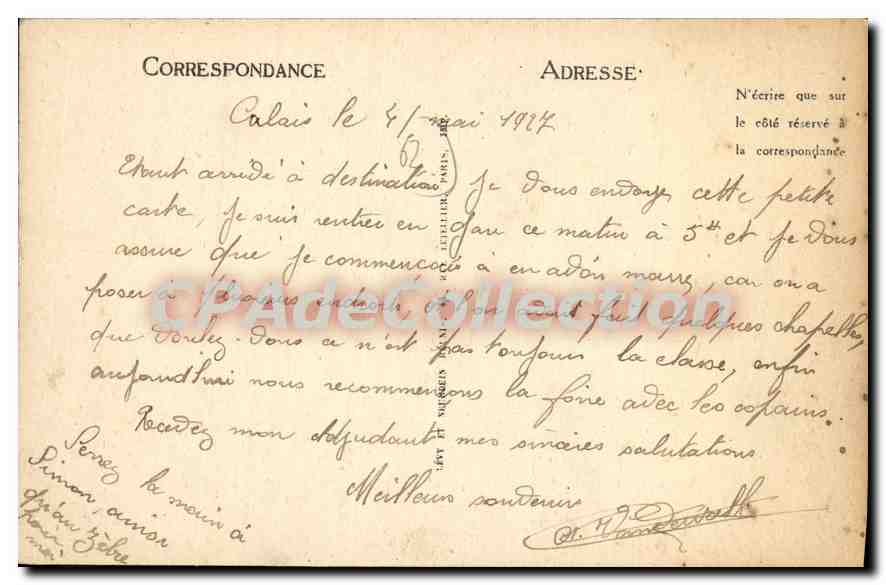 CORRESPONDANCE
ADRESSE
N'écrire que sur
le côté réservé à
la correspondance
Calais le 4/ mai 1927
(62)
Etant arrivé à destination je vous envoye cette petite
carte, je suis rentrée en gare ce matin à 5H et je vous
assure que je commençais à en avoir marre, car on a
poser à divers endroits, et on avait fait quelques chapelles,
que voulez-vous ce n'est pas toujours la classe, enfin
aujourd'hui nous recommençons la foire avec les copains.
Recevez mon Adjudant mes sincères salutations.
Meilleurs souvenirs
Serrez la main à
Simon, ainsi
qu'au zèbre
pour
moi
LÉVY ET NEURDEIN RÉUNIS, RUE LETELLIER, PARIS
CPAdeCollection